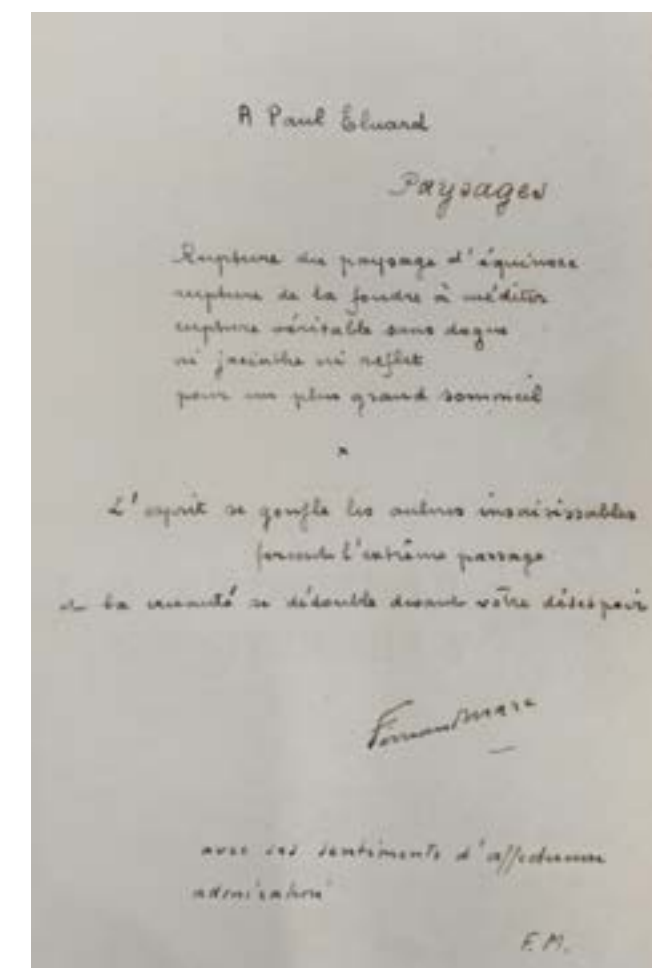 A Paul Éluard
Paysages
Rupture du paysage d'équinoxe
rupture de la foudre à méditer
rupture véritable sans dague
ni jacinthe ni reflet
pour un plus grand sommeil
*
L'esprit se gonfle les autres insaisissables
forcent l'extrême passage
et la cruauté se dédouble devant votre désespoir
Fernand Marc
avec ses sentiments d'affectueuse
admiration
F.M.